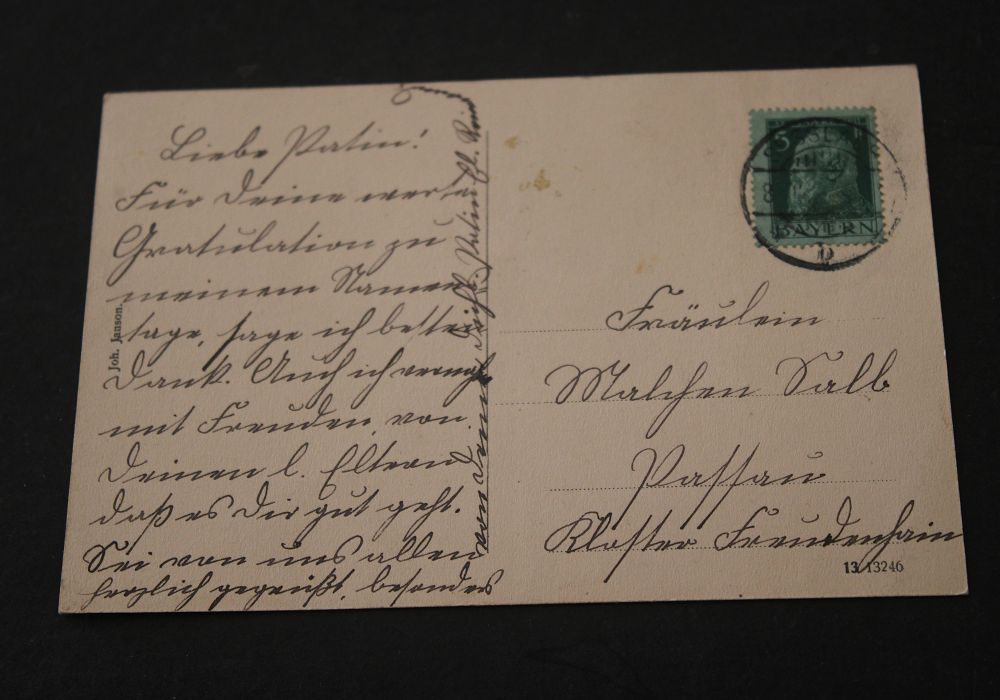 Liebe Patin!
Für Deine werte
Gratulation zu
meinem Namens
tage, sage ich besten
Dank. Auch ich vernahm
mit Freuden, von
Deinen l. Eltern
daß es Dir gut geht.
Sei von uns allen
herzlich gegrüßt, besonders
von Deinem Patin
Joh. Janson.
5
BAYERN
b
Fräulein
Malchen Salb
Passau
Kloster Freudenhain
13/13246